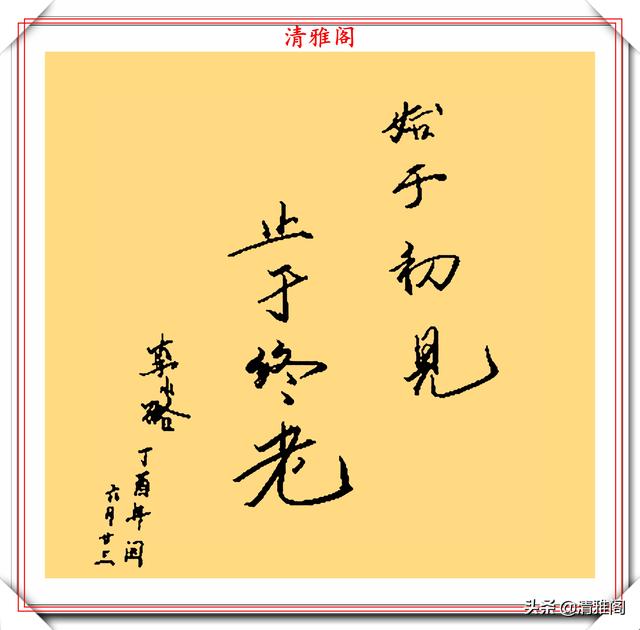 清雅阁
始于初見
止于终老
丁酉年闰
六月廿三
头条 @清雅阁